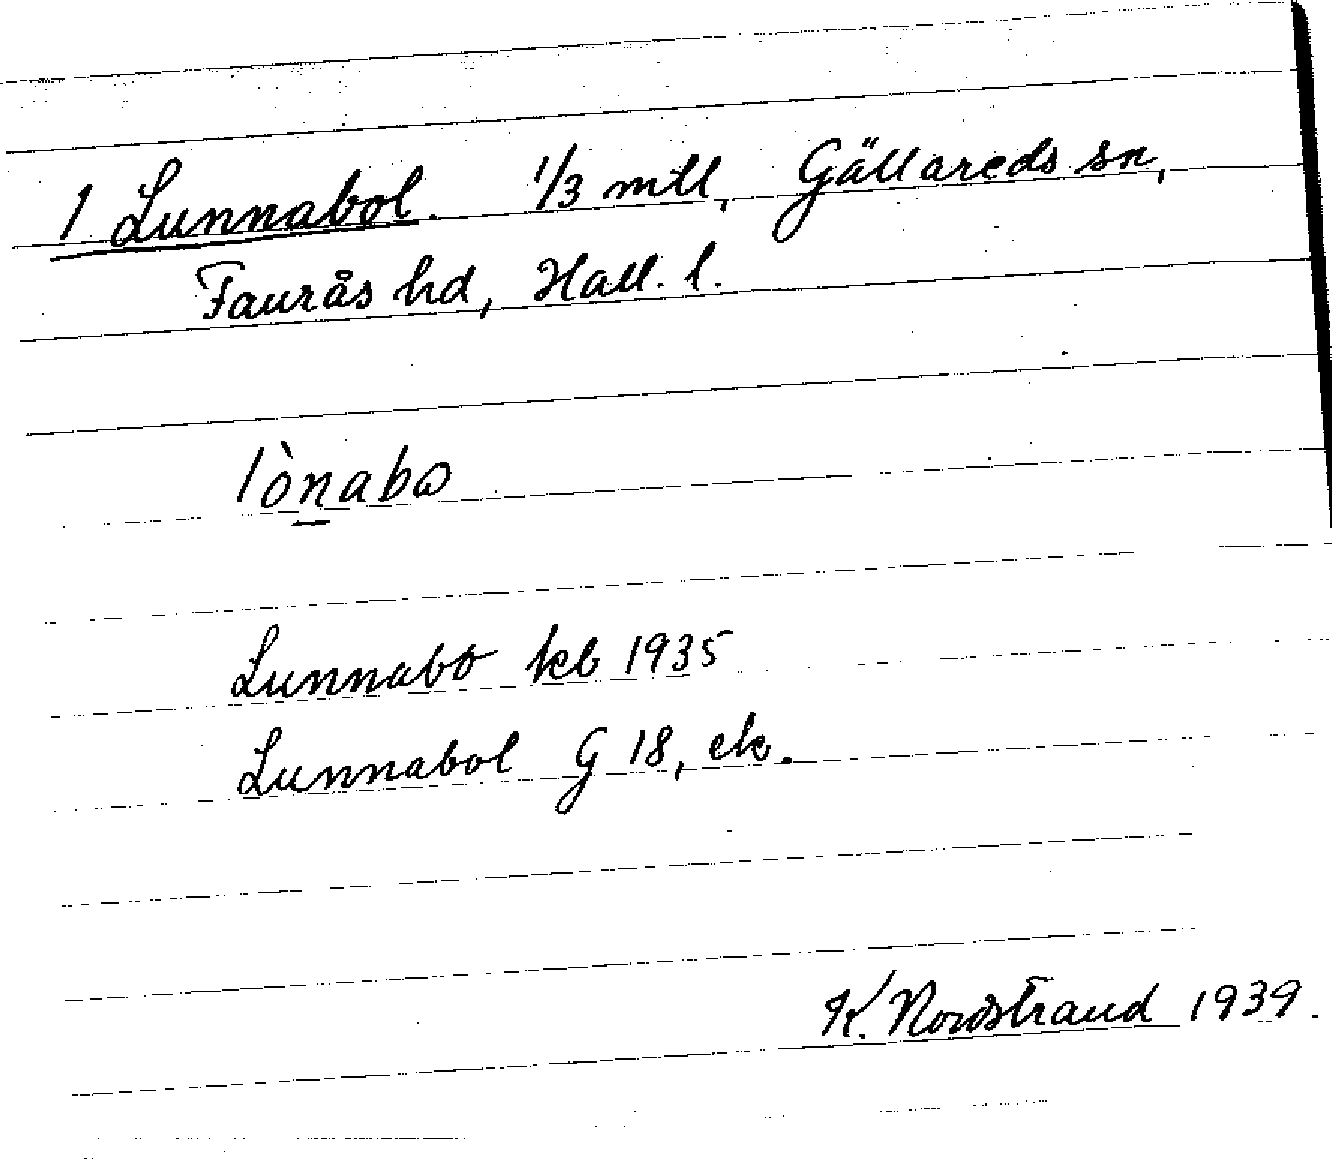 1 Lunnabol. 1/3 mtl, Gällareds sn,
Faurås hd, Hall. l.
lònabω
Lunnabo kb 1935
Lunnabol G 18, ek.
K. Nordstrand 1939.